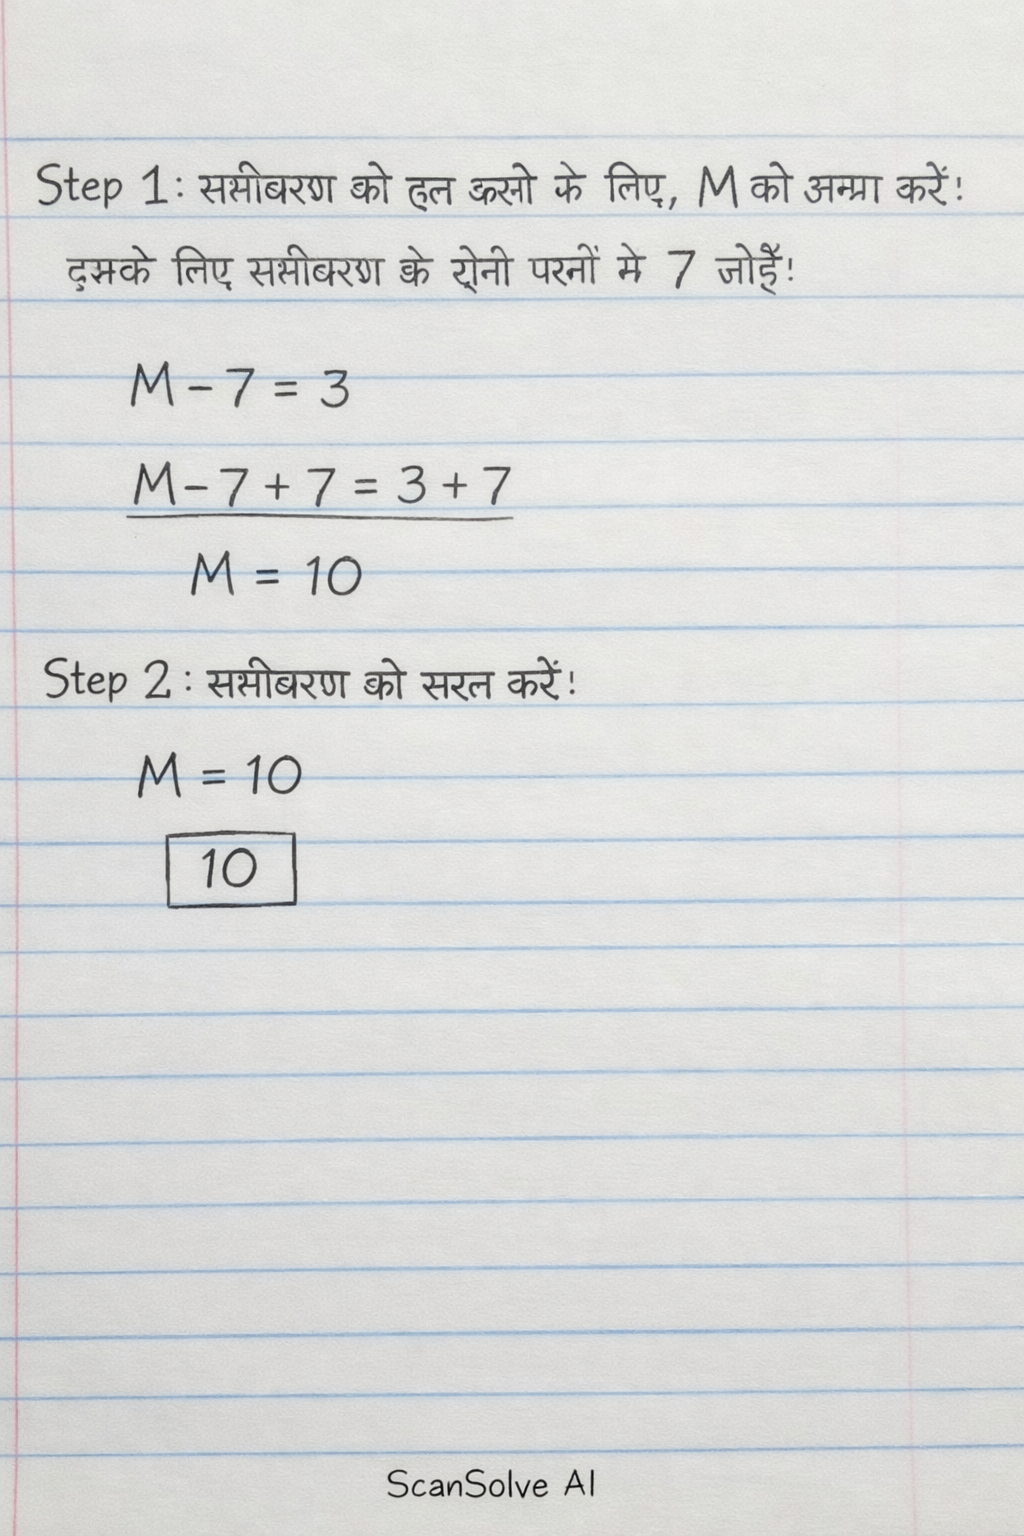 Step 1: समीबरण को हल करनो के लिए, M को अन्मा करें!
दुमके लिए समीबरण के रोनी परनीं मे 7 जोड़ैं!
M - 7 = 3
M - 7 + 7 = 3 + 7
M = 10
Step 2: समीबरण को सरल करें!
M = 10
10
ScanSolve AI